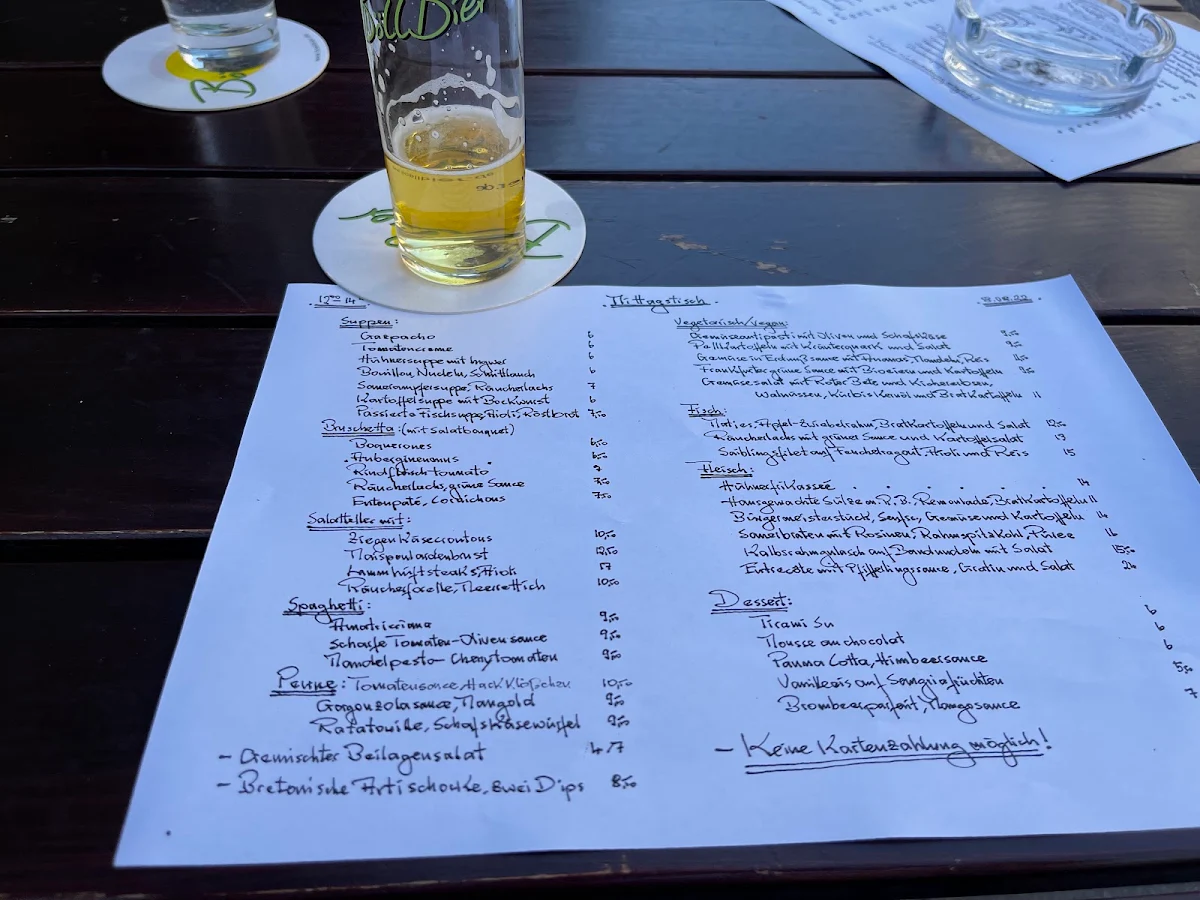 BöllBier
12⁰⁰-14⁰⁰
Mittagstisch
Suppen:
Gazpacho 6
Tomatencreme 6
Hühnersuppe mit Ingwer 6
Bouillon, Nudeln, Schnittlauch 6
Sauerampfersuppe, Räucherlachs 7
Kartoffelsuppe mit Bockwurst 6
Passierte Fischsuppe, Aioli, Röstbrot 7,50
Bruschetta: (mit Salatbouquet)
Boquerones 6,50
Auberginenmus 6,50
Rindfleisch tonnato 7
Räucherlachs, grüne Sauce 7,50
Entenpaté, Cornichons 7,50
Salatteller mit:
Ziegenkäsecroutons 10,50
Maispoulardenbrust 12,50
Lammhüftsteaks, Aioli 17
Räucherforelle, Meerrettich 10,50
Spaghetti:
Amatriciana 9,50
scharfe Tomaten-Olivensauce 9,50
Mandelpesto-Cherrytomaten 9,50
Penne: Tomatensauce, Hackklöpschen 10,50
Gorgonzolasauce, Mangold 9,50
Ratatouille, Schafskäsewürfel 9,50
- Gemischter Beilagensalat 4/7
- Bretonische Artischocke, zwei Dips 8,50
Vegetarisch/vegan:
Gemüseantipasti mit Oliven und Schafskäse 9,50
Pellkartoffeln mit Kräuterquark und Salat 9,50
Gemüse in Erdnußsauce mit Ananas, Mandeln, Reis
Frankfurter grüne Sauce mit Bioeiern und Kartoffeln 9,50
Gemüsesalat mit Roter Bete und Kichererbsen,
Walnüssen, Kürbiskernöl und Bratkartoffeln 11
Fisch:
Matjes, Apfel-Zwiebelrahm, Bratkartoffeln und Salat 12,50
Räucherlachs mit grüner Sauce und Kartoffelsalat 13
Saiblingsfilet auf Fenchelragout, Aioli und Reis 15
Fleisch:
Hühnerfrikassee 14
Hausgemachte Sülze m.R.B., Remoulade, Bratkartoffeln 11
Bürgermeisterstück, Senfsc, Gemüse und Kartoffeln 14
Sauerbraten mit Rosinen, Rahmspitzkohl, Püree 16
Kalbsrahmgulasch auf Bandnudeln mit Salat 15,50
Entrecôte mit Pfifferlingsauce, Gratin und Salat 24
Dessert:
Tirami Su 6
Mousse au chocolat 6
Panna Cotta, Himbeersauce 6
Vanilleeis auf Sangriafrüchten 5,50
Brombeerparfait, Mangosauce 7
- Keine Kartenzahlung möglich!